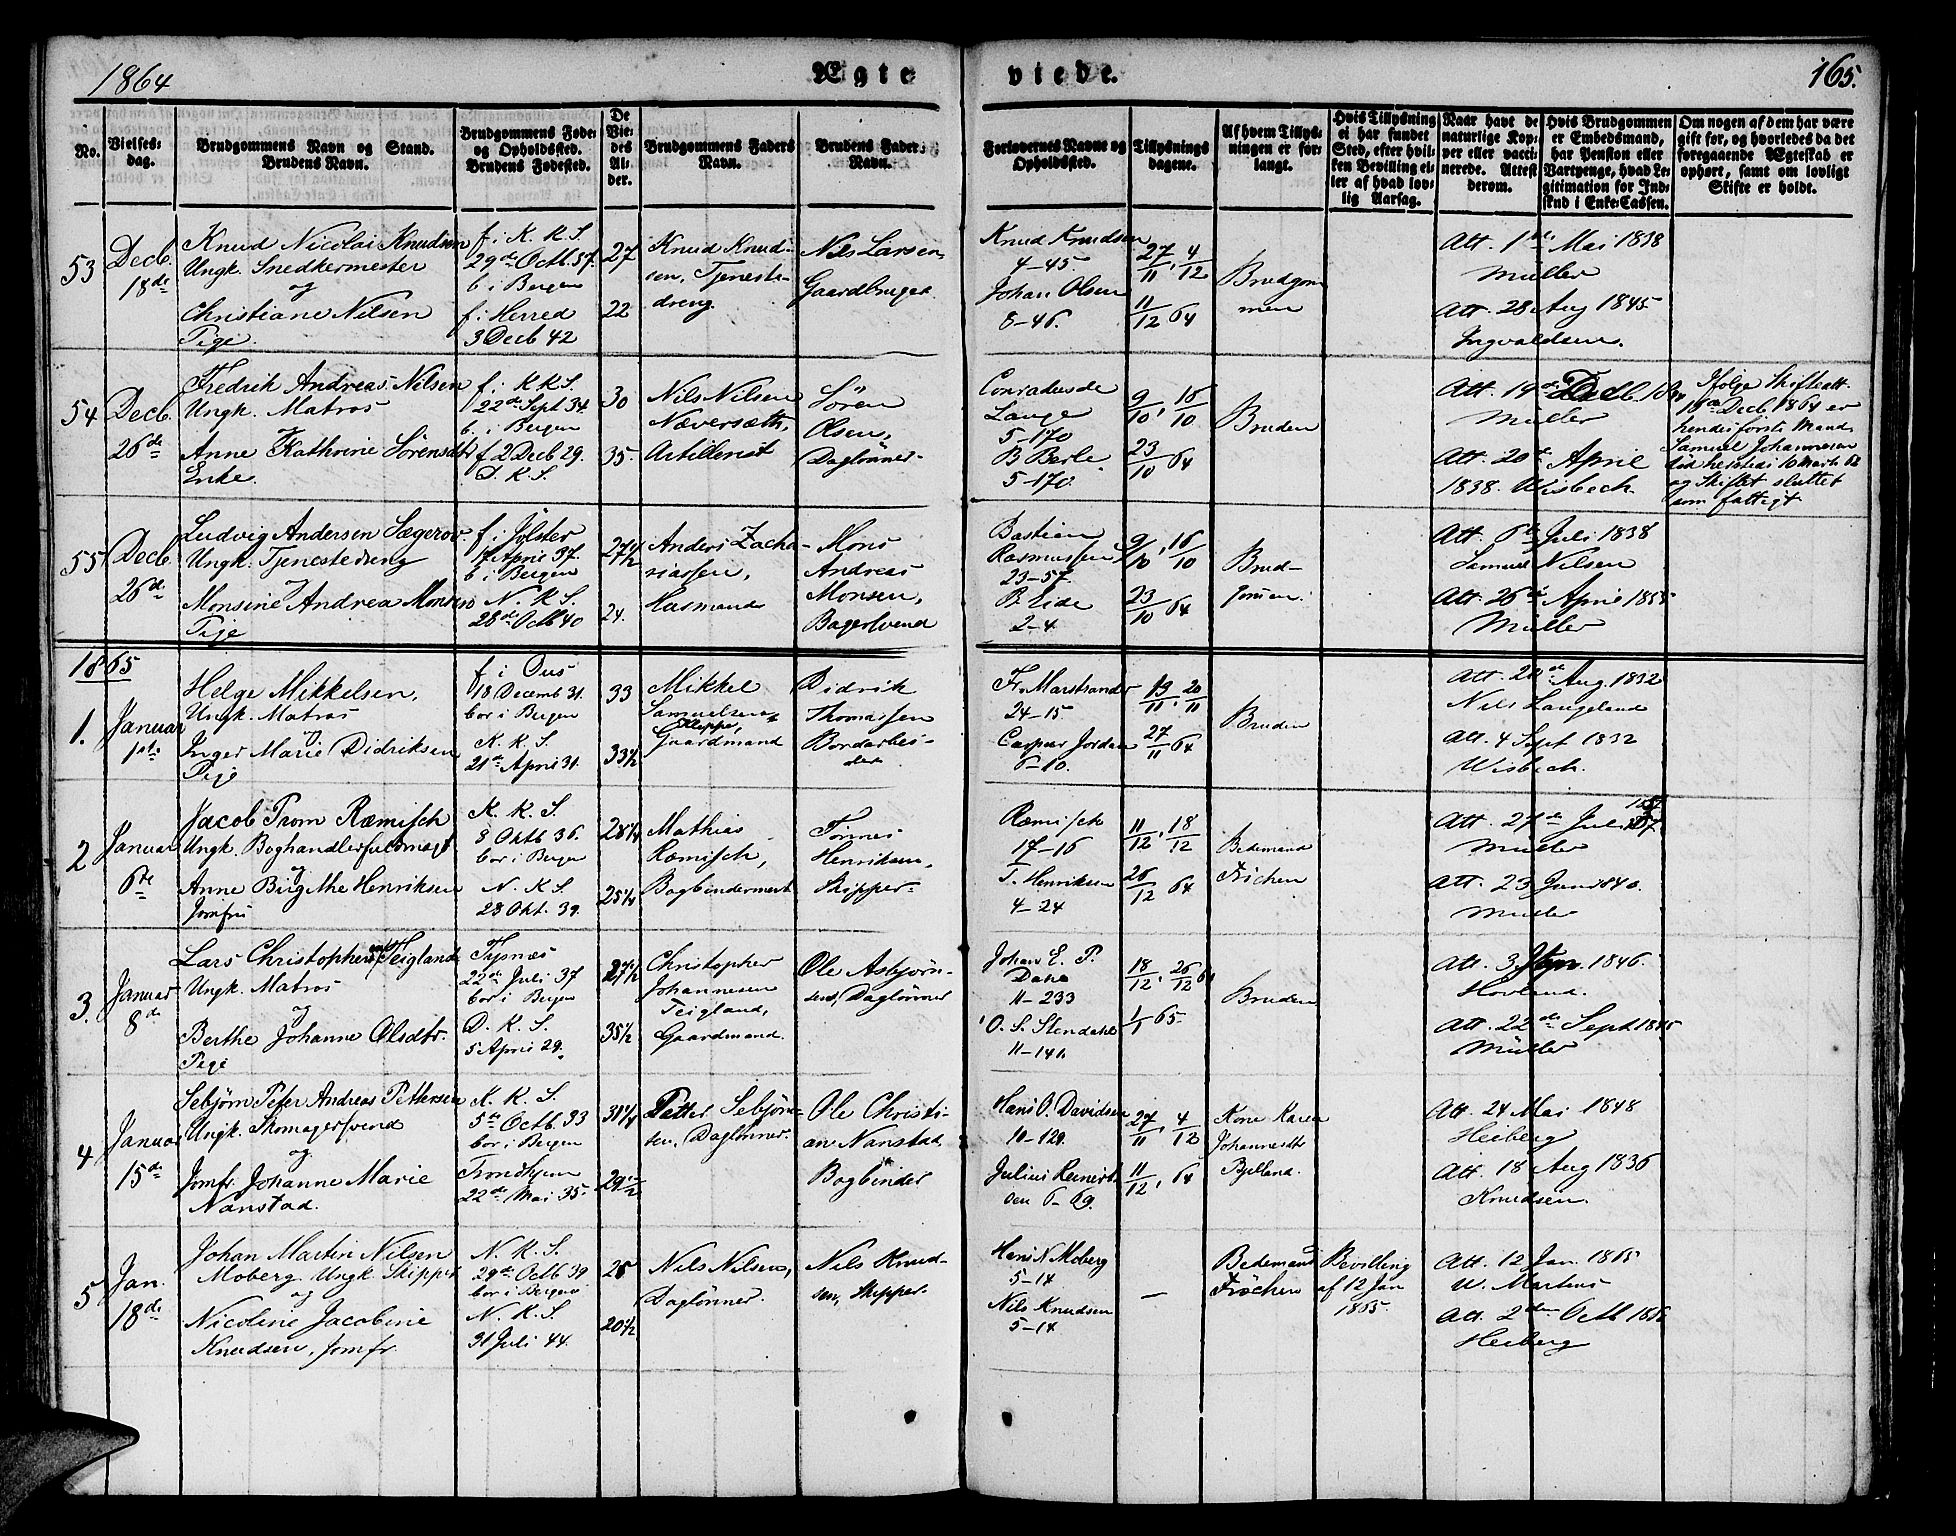 1864
Ægte
viede.
165.
No.
Vielses-
dag.
Brudgommens Navn og Stand.
Brudens Navn.
Brudgommens Føde-
og Opholdssted.
Brudens Fødested.
De
Vie-
des
Al-
der.
Brudgommens Faders
Navn.
Brudens Fader
Navn.
Forlovernes Navne og
Opholdssted.
Tillysnings
dagene.
Af hvem Tillys-
ningen er for-
langt.
Hvis Tillysning
ei har fundet
Sted, efter hvil-
ken Bevilling el-
ler af hvad lov-
lig Aarsag.
Naar havt de
naturlige Kop-
per eller vacci-
nerede. Attest
derom.
Hvis Brudgommen
er Embedsmand,
har Pension eller
Vartpenge, hvad Le-
gitimation for Ind-
skud i Enke-Cassen.
Om nogen af dem har være
gift før, og hvorledes da det
foregaaende Ægteskab er
ophørt, samt om lovligt
Skifte er holdt.
53
Decb.
18de
Knud Nicolai Knudsen
Ungk. Snedkermester
og
Christiane Nilsen
Pige.
f. i K. K. S.
29de Octb. 37.
b. i Bergen
f. i Herred
3 Decb 42
27
22
Knud Knud-
sen, Tjeneste-
dreng.
Nils Larsen,
Gaardbruger.
Knud Knudsen
4-45.
Johan Olsen
8-46.
27/11, 4/12
11/12 64
Brudgom
men
Att. 1de Mai 1838
Müller
Att. 28 Aug 1845
Ingvaldsen.
54
Decb.
26de
Fredrik Andreas Nilsen
Ungk. Matros
Anne Kathrine Sörensdtr
Enke.
f. i K. K. S.
22de Sept 34.
b. i Bergen
f. 2 Decb 29.
D. K. S.
30
35.
Nils Nilsen
Næversæth,
Artillerist
Sören
Olsen,
Daglönner
Conradus de
Lange
5-170
B Berle
5-170.
9/10, 16/10
23/10 64
Bruden
Att. 14de Decb.
Müller
Att. 20de April
1838. Wisbech.
Ifølge Skifteatt.
Decb. 1864 er
hendes förste Mand
Samuel Johannesen
10 Marts 62
og Skiftet sluttet
som fattigt
55
Decb.
26de
Ludvig Andersen
Ungk. Tjenestedreng
Monsine Andrea Monsen
Pige
f. i Jölster
17 April 37.
b. i Bergen
N. K. S.
28de Octb 40
27 1/2
24.
Anders Zacha-
riassen,
Husmand
Mons
Andreas
Monsen,
Bagersvend
Bastian
Rasmussen
23-57.
B. Eide
2-4.
9/10, 16/10
23/10 64
Brud-
gommen.
Att. 6te Juli 1838
Samuel Nilsen
Att. 26de April 1855
Müller
1865
1.
Januar
1ste
Helge Mikkelsen,
Ungk. Matros
og
Inger Marie Didriksen
Pige
f. i Ous
18 Decemb 31.
bor i Bergen
K. K. S.
21de April 31.
33
33 1/2
Mikkel
Samuelsen
Kleppe,
Gaardmand
Didrik
Thomassen
Bordarbei-
der
Fr. Marstrander
24-15
Caspar Jordan
6-10.
13/11, 20/11
27/11 64
Bruden
Att. 20de Aug. 1832
Nils Langeland
Att. 4 Sept 1832
Wisbech.
2
Januar
6te
Jacob From Ræmisch
Ungk. Boghandlerfuldmægt
og
Anne Birgithe Henriksen
Jomfru
K. K. S.
8 Oktb 36.
bor i Bergen
N. K. S.
28 Okt. 39.
28 1/4
25 1/4
Mathias
Ræmisch,
Bogbindermest
Tönnes
Henriksen,
Skipper
Ræmisch
17-16
T. Henriksen
4-24
11/12, 18/12
26/12 64
Bedemand
Fröchen
Att. 27de Juli
Müller
Att. 23 Juni 1840.
Müller
3.
Januar
8de
Lars Christophersen Teigland
Ungk. Matros
og
Berthe Johanne Olsdtr.
Pige
Tysnæs
22de Juli 37
bor i Bergen
D. K. S.
5 April 29.
27 1/2
35 1/2
Christopher
Johannesen
Teigland,
Gaardmand.
Ole Asbjörn-
sen, Daglönner
Johan E. P.
Dahl
11-233
O. S. Stendahl
11-141.
18/12, 26/12 64
1/1 65.
Bruden
Att. 3 1846.
Hovland.
Att. 22de Sept 1845
Müller
4
Januar
15de
Sebjörn Peter Andreas Pettersen
Ungk. Skomagersvend
og
Jomfr. Johanne Marie
Nanstad.
K. K. S.
5te Octb. 33
bor i Bergen
Trondhjem
22de Mai 35.
31 1/4
29 1/2
Petter Sebjörn-
sen, Daglönner.
Ole Christi-
an Nanstad,
Bogbinder
Hans O. Davidsen
10-129.
Julius Reinert-
sen 6-69.
27/11, 4/12
11/12, 64
Kone Karen
Johannesdt
Bjelland.
Att. 24 Mai 1848
Heiberg
Att. 18 Aug 1836
Knudsen.
5
Jan.
18de
Johan Martin Nilsen
Moberg Ungk. Skipper
og
Nicoline Jacobine
Knudsen, Jomfr.
N. K. S.
29de Octb 39
bor i Bergen
N. K. S.
31 Juli 44.
25
20 1/2
Nils Nilsen,
Daglönner.
Nils Knud-
sen, Skipper.
Hans N Moberg
5-14
Nils Knudsen
5-14
—
Bedemand
Fröchen
Bevilling
af 12 Jan
1865
Att. 12 Jan. 1865
W. Martens
Att. 2den Octb 1856
Heiberg